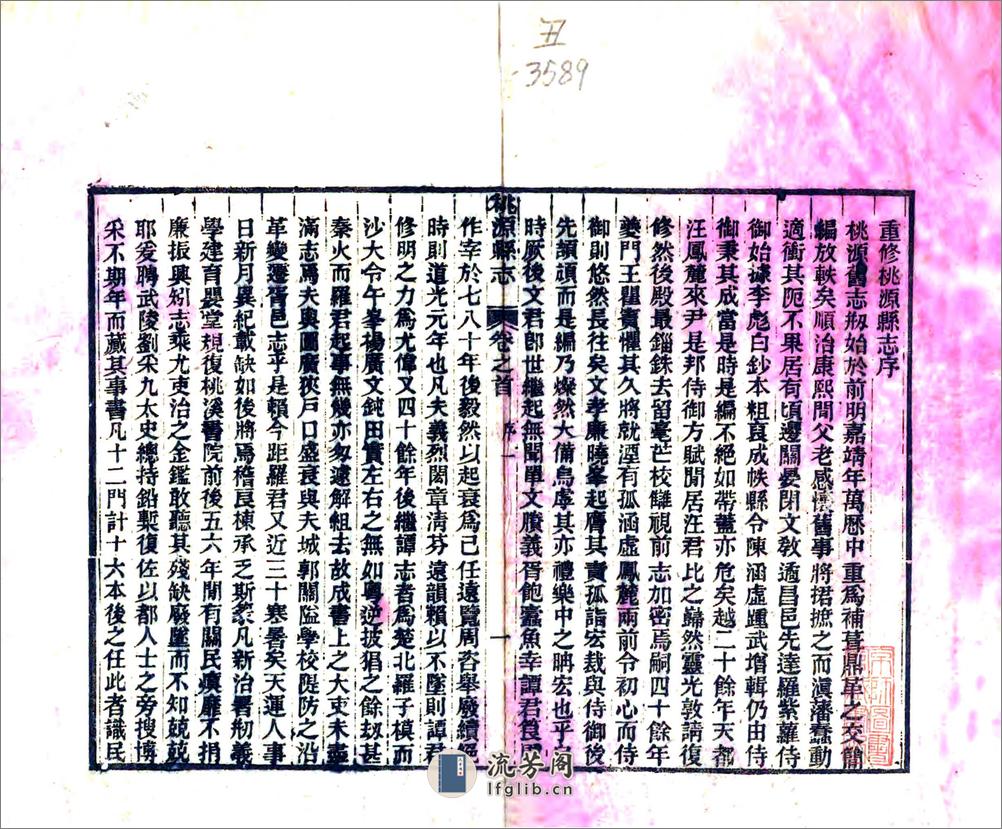 丑
3589
重修桃源縣志序
桃源舊志剏始於前明嘉靖年萬曆中重爲補葺鼎革之交簡
編放軼矣順治康熙間父老感懷舊事將捃摭之而滇藩蠢動
適衝其阨不果居有頃邊關晏閉文敎適昌邑先達羅紫蘿侍
御始據李彪白鈔本粗裒成帙縣令陳涵虛踵武增輯仍由侍
御秉其成當是時是編不絕如帶蓋亦危矣越二十餘年天都
汪鳳麓來尹是邦侍御方賦閒居汪君比之巋然靈光敦請復
修然後殿最錙銖去留毫芒校讎視前志加密焉嗣四十餘年
夔門王瞿賣懼其久將就湮有孤涵虛鳳麓兩前令初心而侍
御則悠然長往矣文孝廉曉峯起膺其責孤詣宏裁與侍御後
先頡頏而是編乃燦然大備鳥虖其亦禮樂中之睭宏也乎
時厥後文君卽世繼起無聞單文賸義胥飽蠹魚幸譚君
桃源縣志
卷之首
序
一
一
作宰於七八十年後毅然以起衰爲已任遠覽周咨舉廢續絕
時則道光元年也凡夫義烈閎章淸芬遠韻賴以不墜則譚君
修明之力爲尤偉又四十餘年後繼譚志者爲楚北羅子模而
沙大令午峯楊廣文鈍田實左右之無如粵逆披猖之餘刼甚
秦火而羅君起事無幾亦匆遽解組去故成書上之大吏未盡
滿志焉夫輿圖廣狹戶口盛衰與夫城郭關隘學校隄防之沿
革變遷胥邑志乎是賴今距羅君又近三十寒暑矣天運人事
日新月異紀載缺如後將焉稽良棟承乏斯黎凡新治署剏義
學建育嬰堂規復桃溪書院前後五六年閒有關民瘼靡不捐
廉振興矧志乘尤吏治之金鑑敢聽其殘缺廢墜而不知兢兢
耶爰聘武陵劉采九太史總持鉛槧復佐以都人士之旁搜博
采不期年而蕆其事書凡十二門計十六本後之任此者識民
流芳阁
lfglib.cn